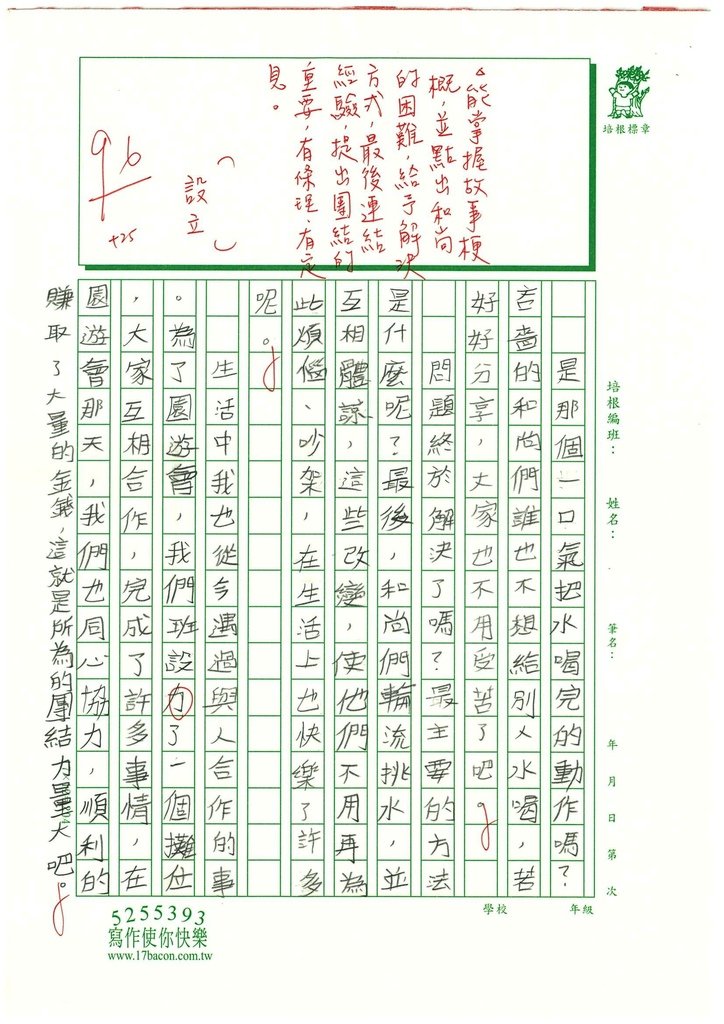 培根標章
◦能掌握故事梗
概，並點出和尚
的困難，給予解決
方式，最後連結
經驗，提出團結的
重要，有條理、有定
見。
設立
96
+25
培根編班：
姓名：
筆名：
年 月 日 第 次
是那個一口氣把水喝完的動作嗎？
吝嗇的和尚們誰也不想給別人水喝，若
好好分享，大家也不用受苦了吧
問題終於解決了嗎？最主要的方法
是什麼呢？最後，和尚們輪流挑水，並
互相體諒，這些改變，使他們不用再為
此煩惱、吵架，在生活上也快樂了許多
呢。
生活中我也從今遇過與人合作的事
。為了園遊會，我們班設力了一個攤位
，大家互相合作，完成了許多事情，在
園遊會那天，我們也同心協力，順利的
賺取了大量的金錢，這就是所為的團結力量大吧。
學校
年級
5255393
寫作使你快樂
www.17bacon.com.tw